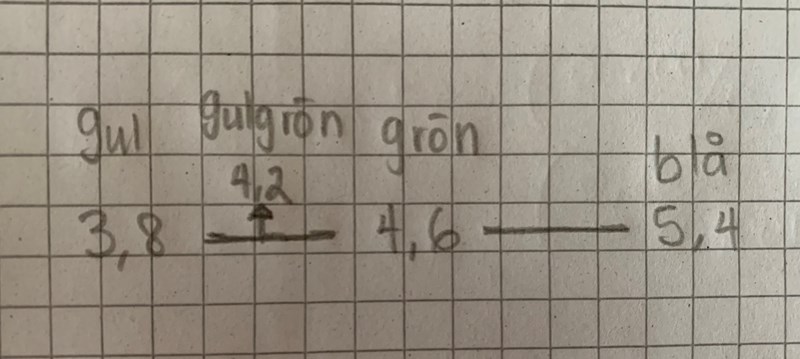 gul gulgrön grön blå
4,2
3,8 — 4,6 — 5,4